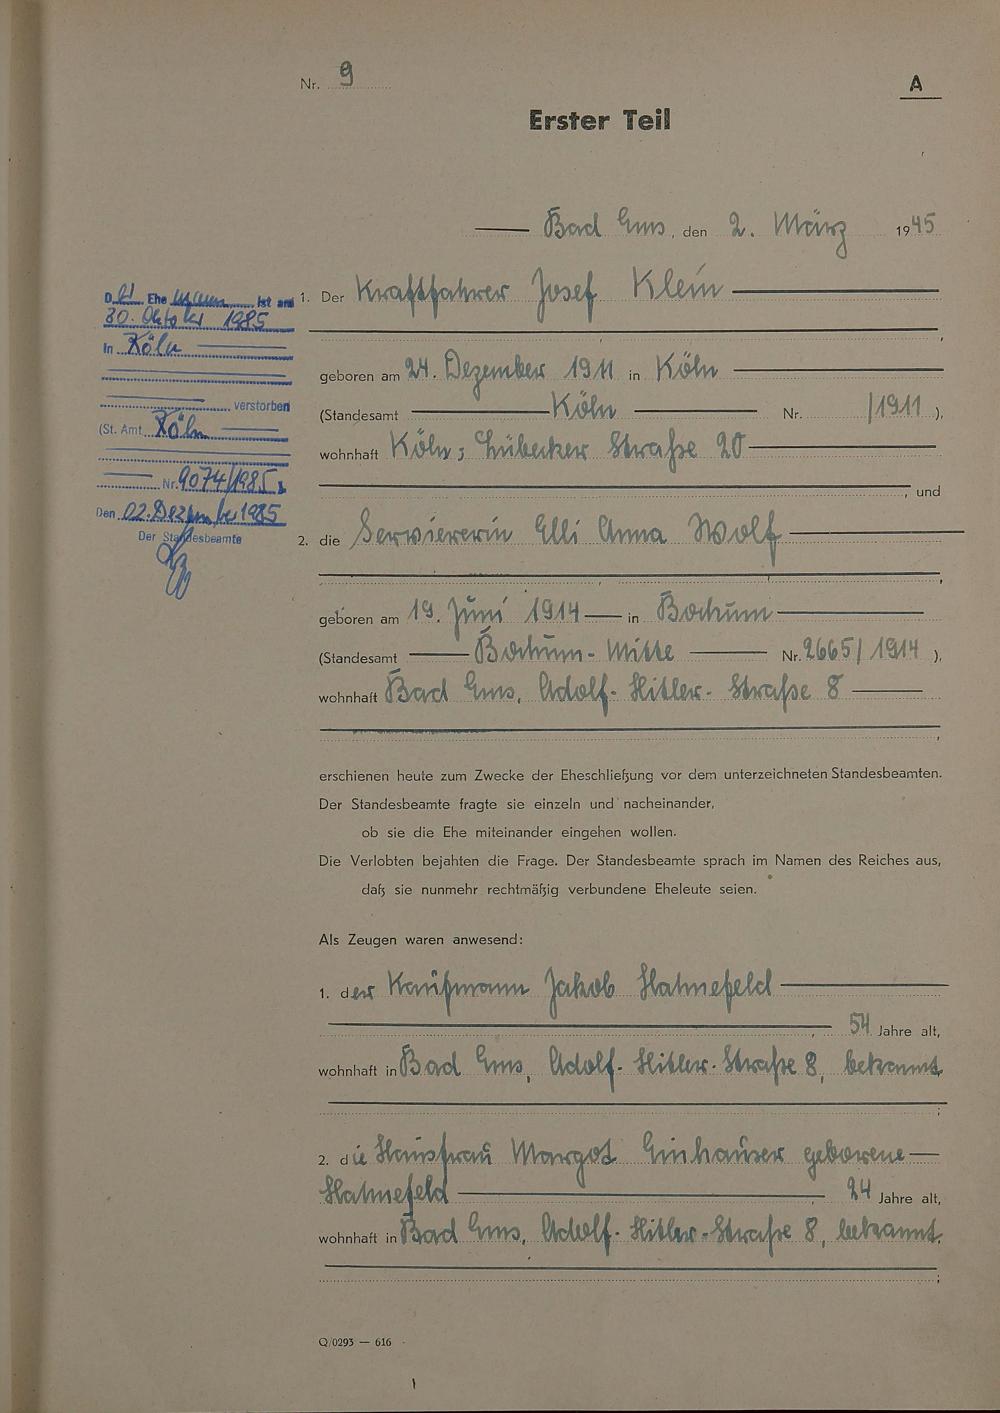 Nr. 9
A
Erster Teil
Bad Ems, den 2. März 1945
1. Der Kraftfahrer Josef Klein
geboren am 24. Dezember 1911 in Köln
(Standesamt Köln Nr. /1911),
wohnhaft Köln, Lübecker Straße 20
, und
2. die Serviererin Elli Anna Wolf
geboren am 19. Juni 1914 in Bochum
(Standesamt Bochum-Mitte Nr. 2665/1914),
wohnhaft Bad Ems, Adolf-Hitler-Straße 8
erschienen heute zum Zwecke der Eheschließung vor dem unterzeichneten Standesbeamten.
Der Standesbeamte fragte sie einzeln und nacheinander,
ob sie die Ehe miteinander eingehen wollen.
Die Verlobten bejahten die Frage. Der Standesbeamte sprach im Namen des Reiches aus,
daß sie nunmehr rechtmäßig verbundene Eheleute seien.
Als Zeugen waren anwesend:
1. der Kaufmann Jakob Hahnefeld
54 Jahre alt,
wohnhaft in Bad Ems, Adolf-Hitler-Straße 8, bekannt
;
2. die Hausfrau Margot Einhäuser geborene
Hahnefeld 24 Jahre alt,
wohnhaft in Bad Ems, Adolf-Hitler-Straße 8, bekannt.
;
Q/0293 — 616
Der Ehemann ist am
30. Oktober 1985
in Köln
verstorben
(St. Amt Köln
Nr. 9074/1985)
Den 02. Dezember 1985
Der Standesbeamte